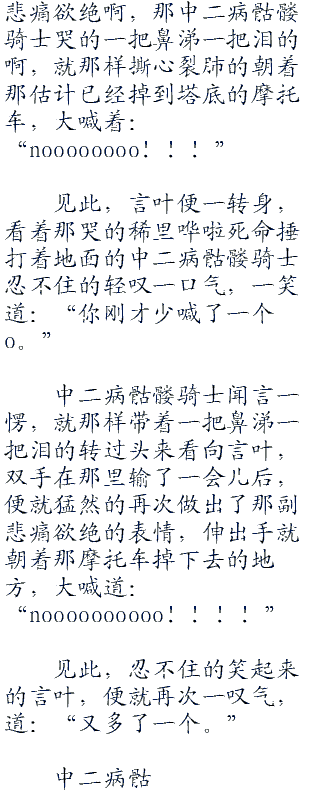 悲痛欲绝啊，那中二病骷髅
骑士哭的一把鼻涕一把泪的
啊，就那样撕心裂肺的朝着
那估计已经掉到塔底的摩托
车，大喊着：
“noooooooo！！！”
见此，言叶便一转身，
看着那哭的稀里哗啦死命捶
打着地面的中二病骷髅骑士
忍不住的轻叹一口气，一笑
道：“你刚才少喊了一个
o。”
中二病骷髅骑士闻言一
愣，就那样带着一把鼻涕一
把泪的转过头来看向言叶，
双手在那里输了一会儿后，
便就猛然的再次做出了那副
悲痛欲绝的表情，伸出手就
朝着那摩托车掉下去的地
方，大喊道：
“noooooooooo！！！！”
见此，忍不住的笑起来
的言叶，便就再次一叹气，
道：“又多了一个。”
中二病骷